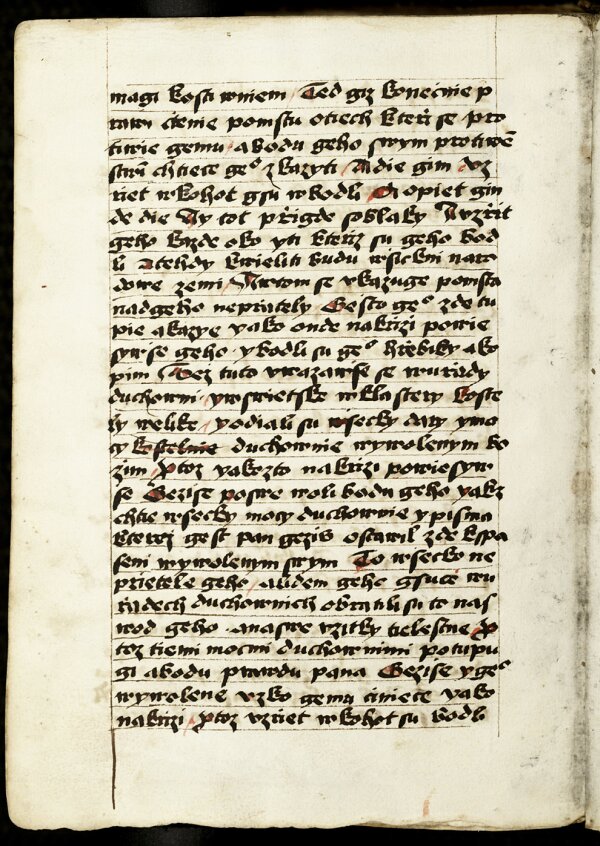 magi kosti wniem Ted giz konecnie p
rawi cienie pomstu otiech kteri se pro
tiwie gemu a bodu geho swym protiwe
stwim chtiece ge° zkazyti A die gim vz
rziet wkohot gsu wbodli A opiet gin
de die Ay tot przigde soblaky A vzrzit
geho kazde oko yti kteriz su geho bod
li A tehdy kwieliti budu wsickni naro
dowe zemi A wtom se vkazuge pomsta
nad geho neprately Gesto ge° zde tu
pie a kazye yako onde nakrzizi powie
sywse geho y bodli su ge° hrebiky a ko
pim Bez tuto wrazawse se wurzady
duchowni y wswietske w klastery koste
ly welike y odiali su wsecky dary y mo
cy kostelnie duchownie wywolenym bo
zim Ptoz yakozto nakrzizi powiesyw
se Gezise poswe woli bodu geho yakz
chtie wsecky mocy duchownie y pisma
kterez gest pan gezis ostawil zde kspa
seni wywolenym swym To wsecko ne
prietele geho a udem geho gsuce wu
radech duchownich obratili su to nas
wod geho a naswe vzitky tielestne P
toz tiemi mocmi duchownimi potupu
gi a bodu prawdu pana Gezise y ge°
wywolene vzko gemu ciniece yako
nakrizi Ptoz vzriet wkohot su bodli